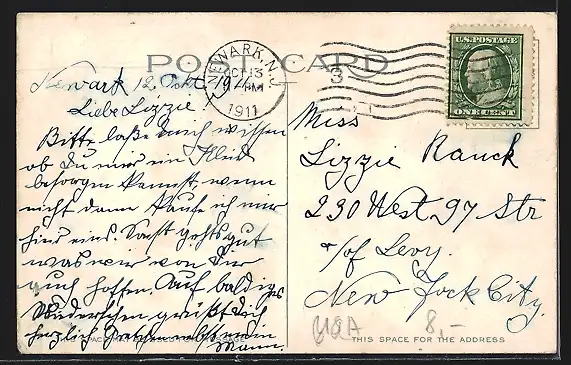 POST CARD
NEWARK, N.J.
OCT 13
PM
1911
3
U.S. POSTAGE
ONE CENT
Newark 12. Okt. 1911
Liebe Lizzie!
Bitte laße mich wissen
ob Du mir ein Kleid
besorgen kannst, wenn
nicht dann kaufe ich mir
hier eins. Sonst gehts gut
was wir von Dir
auch hoffen. Auf baldiges
Wiedersehen grüßt Dich
herzlich nebst mein
Mann.
Miss
Lizzie Ranck
230 West 97 Str
c/of Levy.
New York City.
USA 8,-
THIS SPACE FOR THE ADDRESS